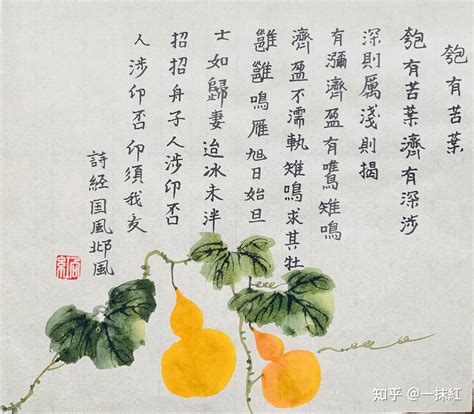 匏有苦葉
匏有苦葉濟有深涉
深則厲淺則揭
有瀰濟盈有鷕雉鳴
濟盈不濡軌雉鳴求其牡
雝雝鳴雁旭日始旦
士如歸妻迨冰未泮
招招舟子人涉卬否
人涉卬否卬須我友
詩經国風邶風
知乎 @一抹紅